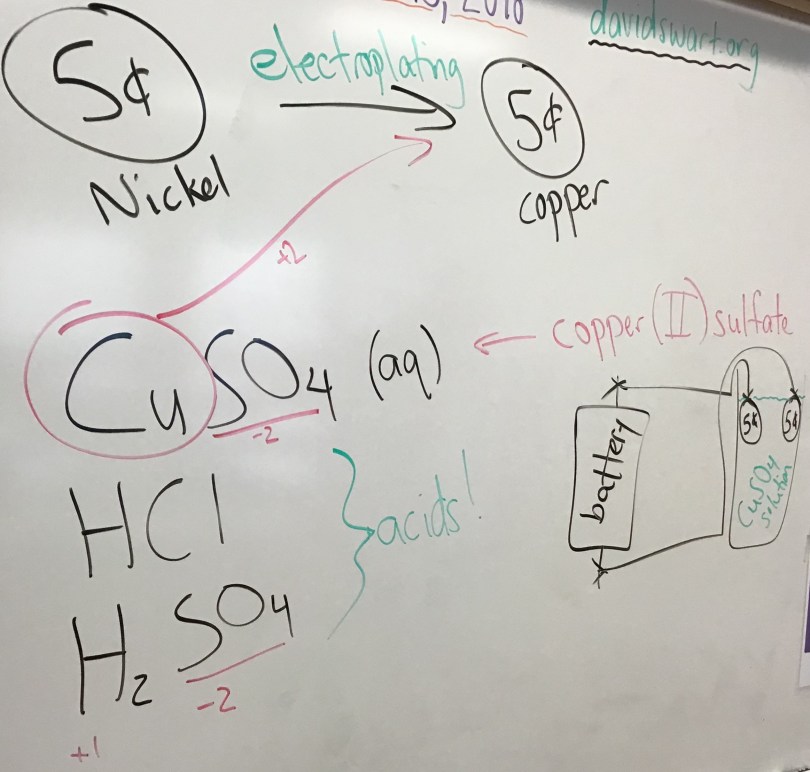 2016
davidswart.org
5¢
electroplating
5¢
Nickel
copper
+2
CuSO4 (aq)
← copper (II) sulfate
-2
battery
5¢ 5¢
CuSO4
solution
HCl
acids!
H2SO4
-2
+1